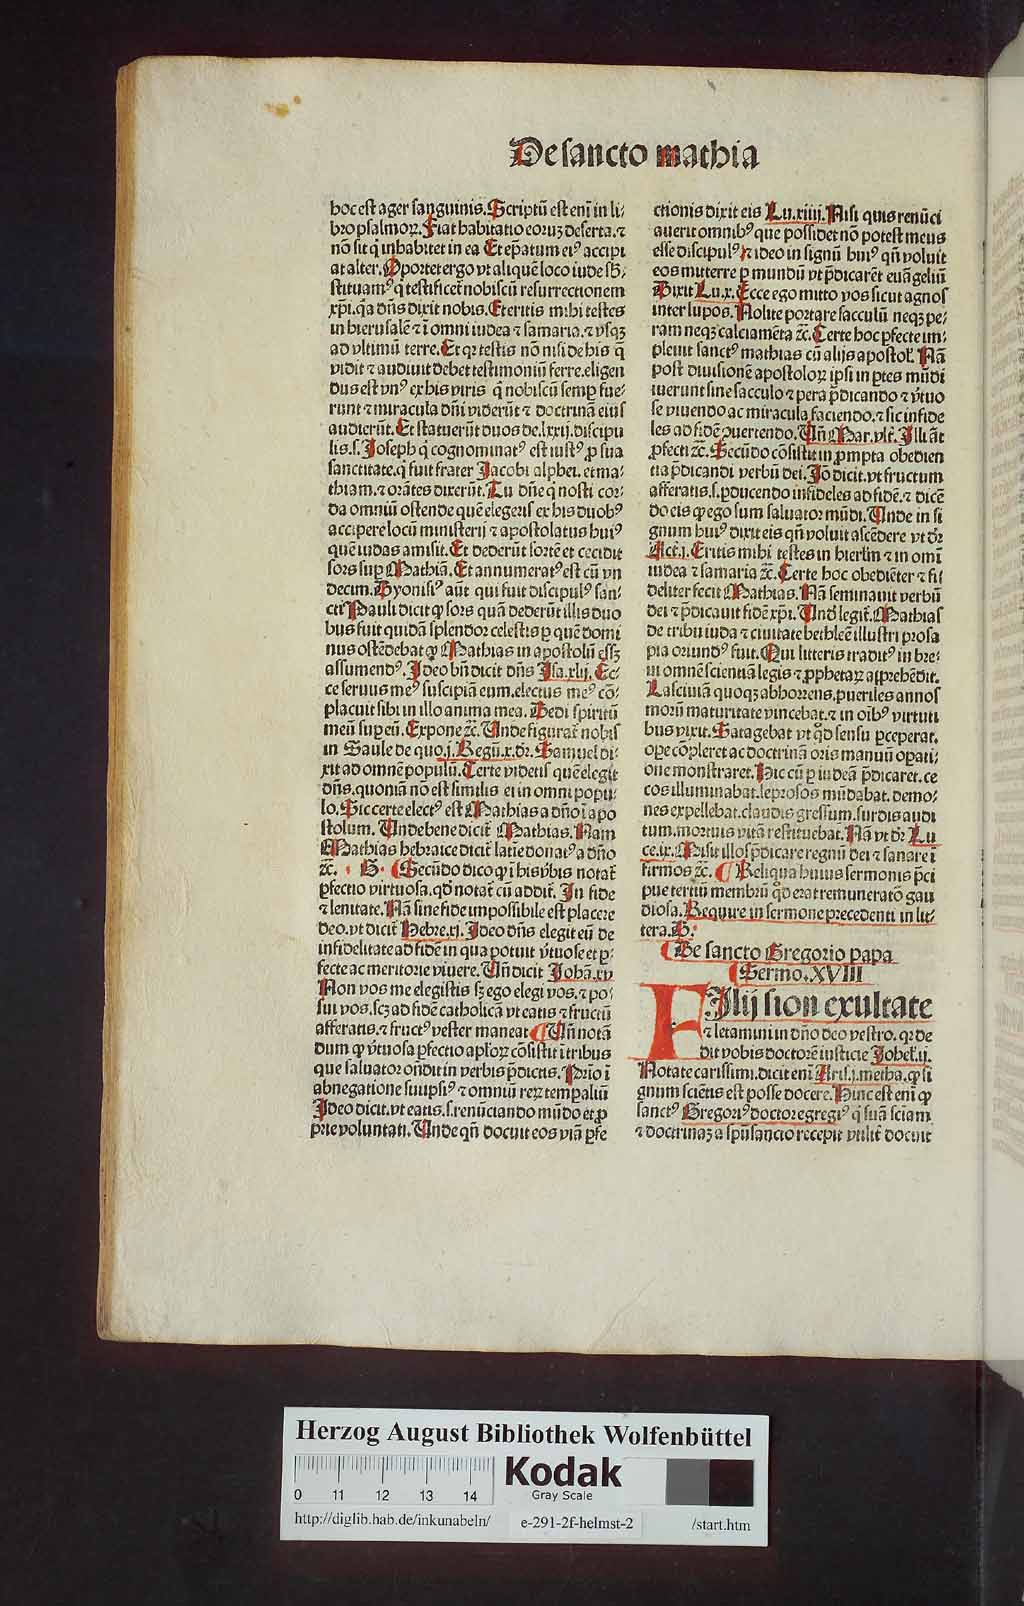 De sancto mathia
hoc est ager sanguinis. Scriptū est enī in li⸗
bro psalmoꝝ. Fiat habitatio eoruꝫ deserta. ⁊
nō sit q̇ inhabitet in ea Et ep̄atum eiꝰ accipi
at alter. Oportet ergo vt aliquē loco iude sb̄⸗
stituamꝰ q̇ testificet̄ nobiscū resurrectionem
xp̄i. q̇a dn̄s dixit nobis. Et eritis mihi testes
in hierusalē ⁊ ī omni iudea ⁊ samaria. ⁊ vsqꝫ
ad vltimū terre. Et qꝛ testis nō nisi de his q̄
vidit ⁊ audiuit debet testimoniū ferre. eligen
dus est vnꝰ ex his viris q̇ nobiscū semꝑ fue⸗
runt ⁊ miracula dn̄i viderūt ⁊ doctrinā eius
audierūt. Et statuerūt duos de. lxxij. discipu
lis. s. Joseph q̇ cognominatꝰ est iustꝰ ꝓ sua
sanctitate. q̇ fuit frater Jacobi alphei. et ma⸗
thiam. ⁊ orātes dixerūt. Tu dn̄e q̇ nosti cor⸗
da omniū ostende quē elegeris ex his duobꝰ
accipere locū ministerij ⁊ apostolatus huiꝰ
quē iudas amisit. Et dederūt sortē et cecidit
sors suꝑ Mathiā. Et annumeratꝰ est cū vn
decim. Dyonisiꝰ aūt qui fuit discipulꝰ san⸗
cti Pauli dicit ꝙ sors quā dederūt illis duo
bus fuit quidā splendor celestis ꝑ quē domi
nus ostēdebat ꝙ Mathias in apostolū eēꝫ
assumendꝰ. Ideo bn̄ dicit dn̄s Isa. xlij. Ec⸗
ce seruus meꝰ suscipiā eum. electus meꝰ cō⸗
placuit sibi in illo anima mea. Dedi spiritū
meū suꝑ eū. Expone ⁊c̄. Vnde figurat̄ nobis
in Saule de quo. j. Regū. x. dr̄. Samuel di⸗
xit ad omnē populū. Certe videtis quē elegit
dn̄s. quoniā nō est similis ei in omni popu⸗
lo. Sic certe electꝰ est Mathias a dn̄o ī apo
stolum. Vnde bene dicit̄ Mathias. Nam
Mathias hebraice dicit̄ latīe donatꝰ a dn̄o
⁊c̄. G. Secūdo dico ꝙ ī his v̄bis notat̄
ꝑfectio virtuosa. qd̄ notat̄ cū addit̄. In fide
⁊ lenitate. Nā sine fide impossibile est placere
deo. vt dicit̄ Hebre. xj. Ideo dn̄s elegit eū de
infidelitate ad fidē in qua potuit v̄tuose et ꝑ⸗
fecte ac meritorie viuere. Vn̄ dicit Johā. xv
Non vos me elegistis sꝫ ego elegi vos. ⁊ po⸗
sui vos. scꝫ ad fidē catholicā vt eatis ⁊ fructū
afferatis. ⁊ fructꝰ vester maneat Vn̄ notā
dum ꝙ v̄tuosa ꝑfectio apl̄oꝝ cōsistit ī tribus
que saluator on̄dit in verbis p̄dictis. Prīo ī
abnegatione suiipsiꝰ ⁊ omniū reꝝ tempaliū
Ideo dicit. vt eatis. s. renūciando mūdo et ꝓ
prie voluntati. Vnde qn̄ docuit eos viā ꝑfe
ctionis dixit eis Lu. xiiij. Nisi quis renūci
auerit omnibꝰ que possidet nō potest meus
esse discipulꝰ ⁊ ideo in signū huiꝰ qn̄ voluit
eos mittere ꝑ mundū vt p̄dicarēt euāgeliū
Dixit Lu. x. Ecce ego mitto vos sicut agnos
inter lupos. Nolite portare sacculū neqꝫ pe⸗
ram neqꝫ calciamēta ⁊c̄. Certe hoc ꝑfecte im⸗
pleuit sanctꝰ mathias cū alijs apostol̄. Nā
post diuisionē apostoloꝝ ipsi in ꝑtes mūdi
iuerunt sine sacculo ⁊ pera p̄dicando ⁊ v̄tuo
se viuendo ac miracula faciendo. ⁊ sic infide
les ad fidē ↄuertendo. Vn̄ Mar. vlt̄. Illi āt
ꝓfecti ⁊c̄. Secūdo cōsistit in ꝓmpta obedien
tia p̄dicandi verbū dei. Iō dicit. vt fructum
afferatis. s. ꝓducendo infideles ad fidē. ⁊ dicē
do eis ꝙ ego sum saluator mūdi. Vnde in si
gnum huiꝰ dixit eis qn̄ voluit ascēdere vt dr̄
Act. j. Eritis mihi testes in hierl̄m ⁊ in omī
iudea ⁊ samaria ⁊c̄. Certe hoc obediēter ⁊ fi⸗
deliter fecit Mathias. Nā seminauit verbū
dei ⁊ p̄dicauit fidē xp̄i. Vnd̄ legit̄. Mathias
de tribu iuda ⁊ ciuitate bethleē illustri prosa
pia oriundꝰ fuit. Qui litteris traditꝰ in bre⸗
ui omnē scientiā legis ⁊ ꝓphetaꝝ apprehēdit.
Lasciuiā quoqꝫ abhorrens. pueriles annos
morū maturitate vincebat. ⁊ in oībꝰ virtuti
bus vixit. Satagebat vt qd̄ sensu ꝑceperat.
ope cōpleret ac doctrinā oris manuū opati⸗
one monstraret. Hic cū ꝑ iudeā p̄dicaret. ce
cos illuminabat. leprosos mūdabat. demo⸗
nes expellebat. claudis gressum. surdis audi
tum. mortuis vitā restituebat. Nā vt dr̄ Lu
ce. ix. Misit illos p̄dicare regnū dei ⁊ sanare ī
firmos ⁊c̄. Reliqua huius sermonis p̄ci
pue tertiū membrū qd̄ erat remuneratō gau
diosa. Require in sermone precedenti in lit⸗
tera. G.
De sancto Gregorio papa
Sermo. XVIII
FIlij sion exultate
⁊ letamini in dn̄o deo vestro. qꝛ de
dit vobis doctorē iusticie Johel̄. ij.
Notate carissimi. dicit enī Aris. j. metha. ꝙ si
gnum sciētis est posse docere. Hinc est enī ꝙ
sanctꝰ Gregoriꝰ doctor egregiꝰ q̇ suā sciam
⁊ doctrinaꝫ a spū sancto recepit vtilit̄ docuit
Herzog August Bibliothek Wolfenbüttel
0 11 12 13 14
Kodak
Gray Scale
http://diglib.hab.de/inkunabeln/ e-291-2f-helmst-2 /start.htm